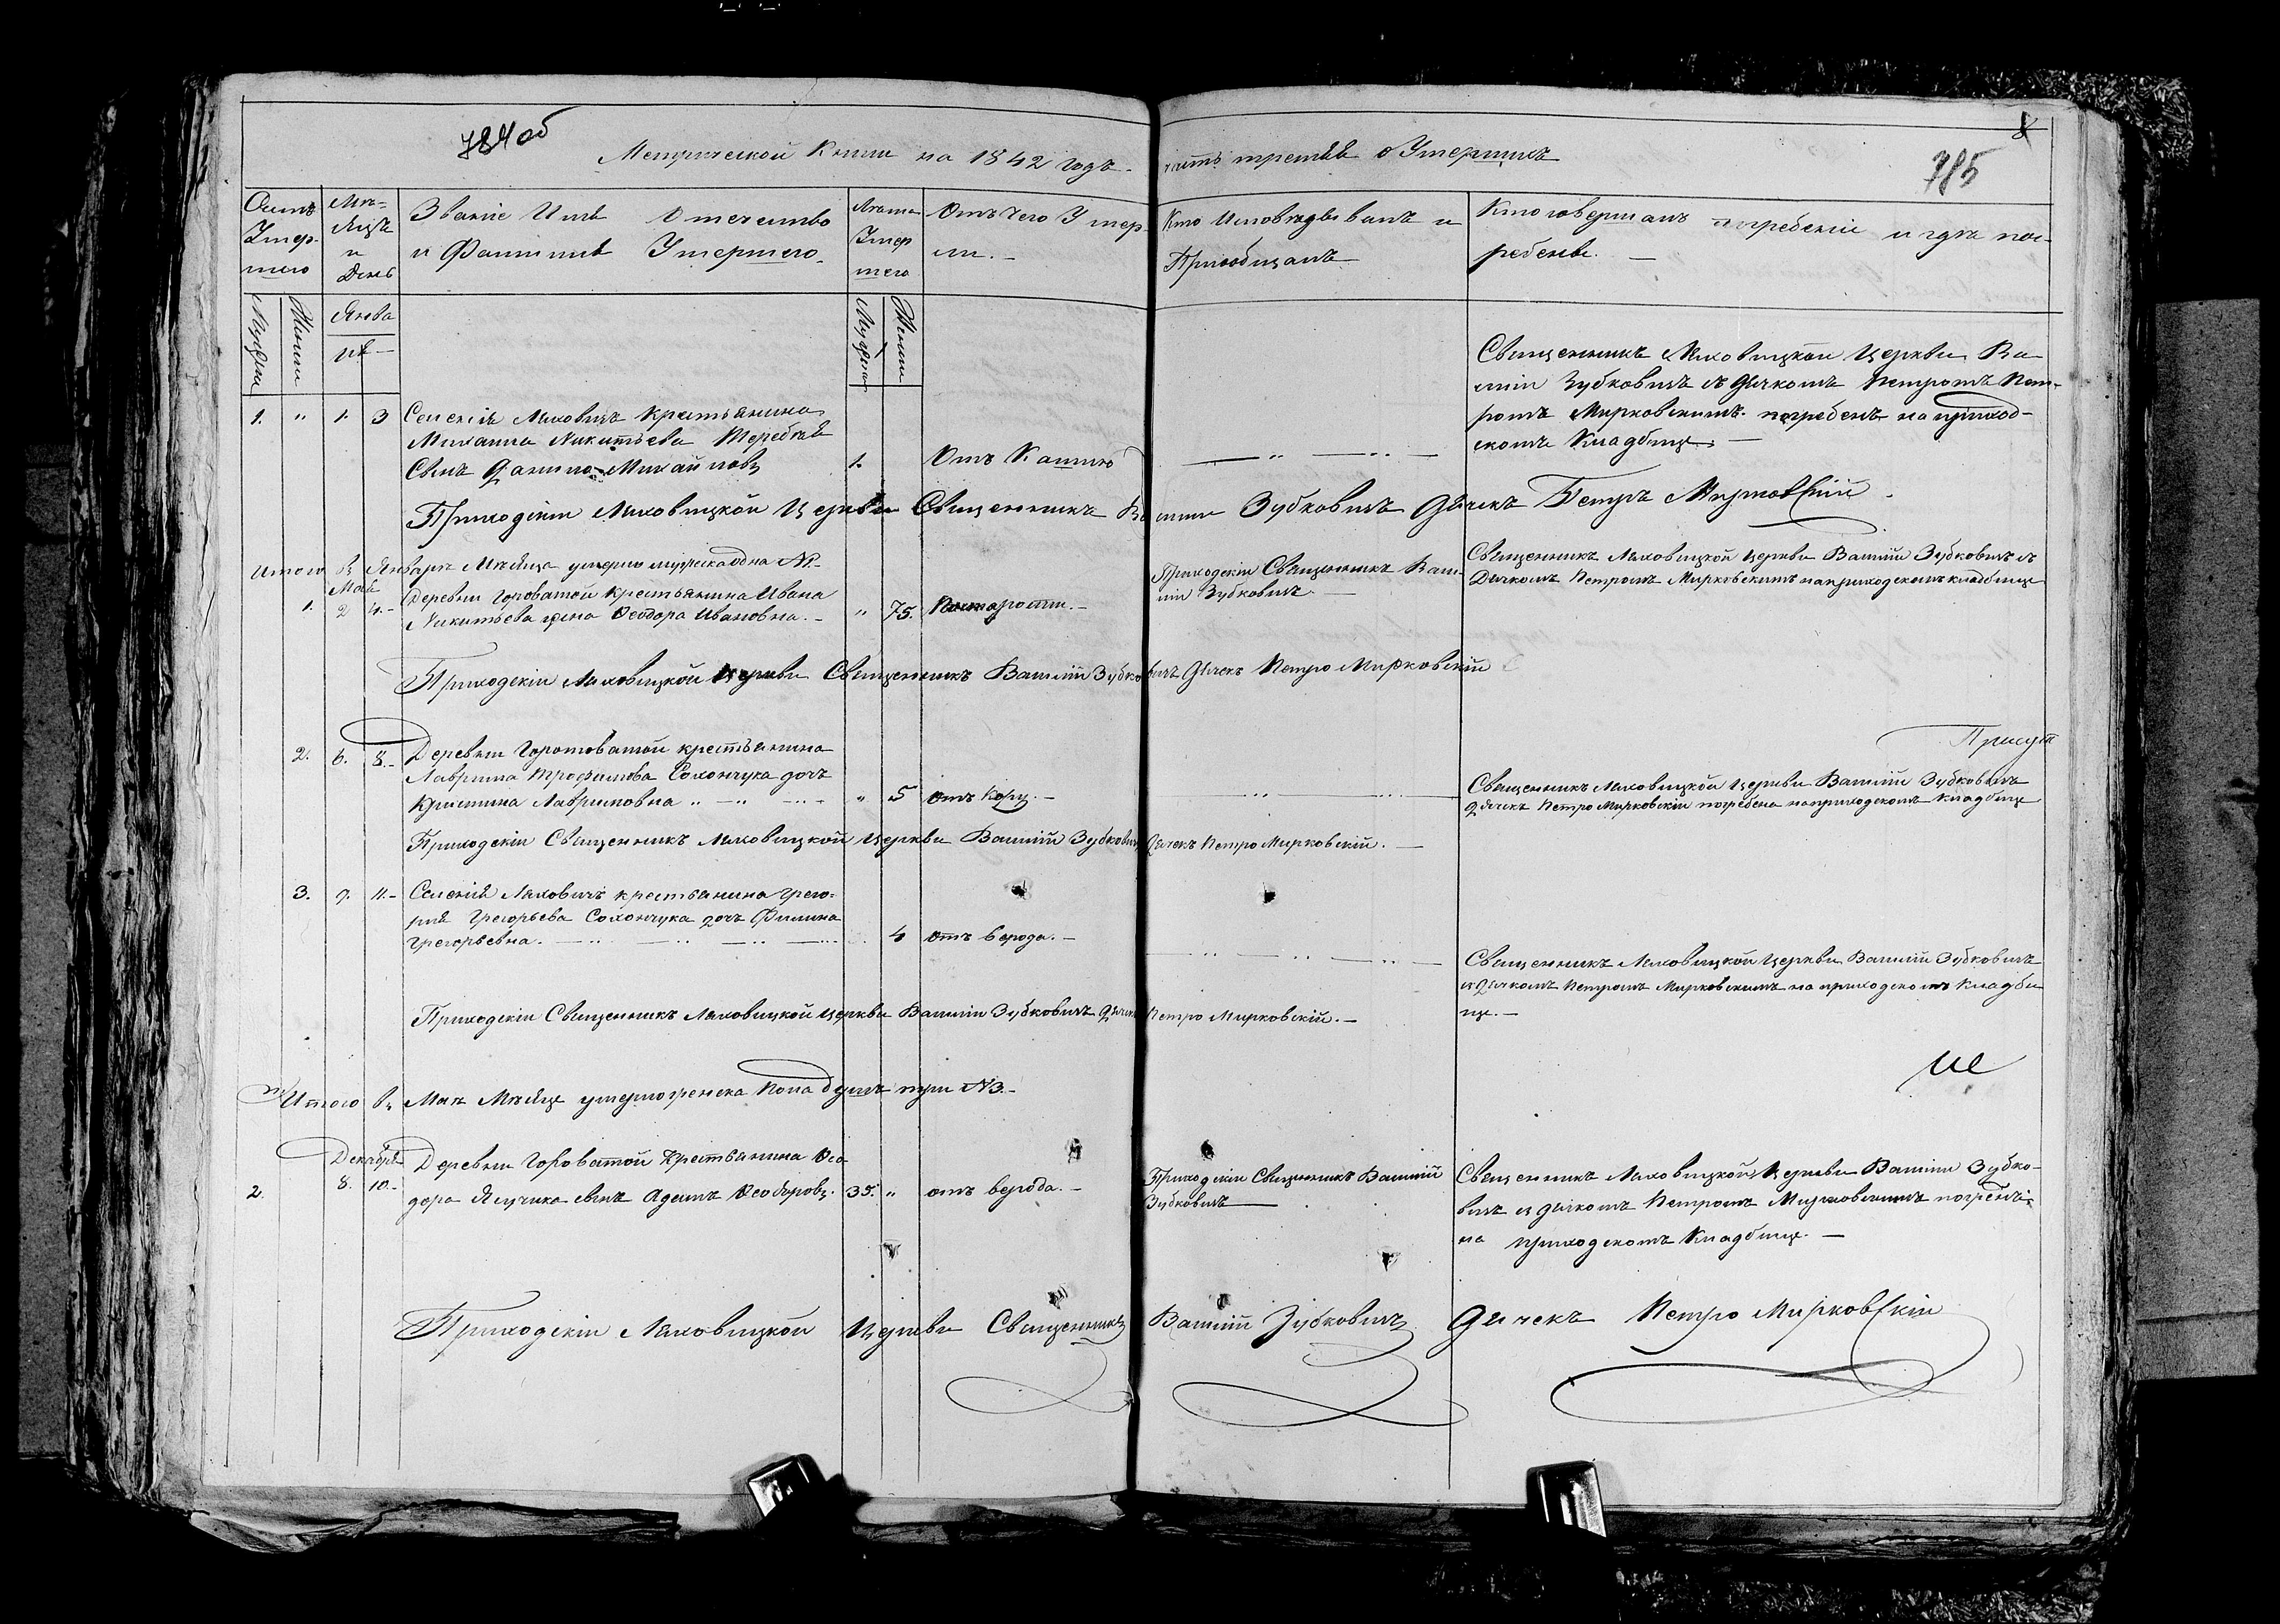 784об
Метрической Книги на 1842 годъ. часть третья о Умершихъ
785
Счетъ Умер- шего
Мѣ- сяцъ и День
Званіе Имя Отечество
и Фамилия Умершего.
Лѣта Умер шего
Отъ чего Умер-
ли. –
Кто Исповѣдывалъ и
Приобщалъ
Кто совершалъ погребеніе и гдѣ пог-
ребены. —
Мужеска
Женски
Янва
ря —
Мужеска
Женски
1. " 1. 3 Селенія Ляховичъ Крестьянина
Михаила Никитьева Жеребкова
Сынъ Данило Михайловъ 1. Отъ Кашлю
— " — " —
Священникъ Ляховицкой Церкви Ва-
силій Зубковичъ съ Дячкомъ Петромъ Пет-
ромъ Мирковскимъ погребенъ на приход-
скомъ Кладбище. —
Приходскій Ляховицкой Церкви Священникъ Василій Зубковичъ Дячекъ Петръ Мирковскій.
Итого въ Январѣ Мѣсяце умерло мужеска одна №1.
Мая
1. 2 4. – Деревни Гороватой Крестьянина Ивана
Никитьева жена Ѳеодора Ивановна. – " 75. По старости. –
Приходскій Священникъ Васи-
лій Зубковичъ. —
Священникъ Ляховицкой Церкви Василій Зубковичъ съ
Дячкомъ Петромъ Мирковскимъ на приходскомъ кладбище
Приходскій Ляховицкой Церкви Священникъ Василій Зубковичъ Дячекъ Петро Мирковскій
Присут
2. 6. 8. – Деревни Гороватой крестьянина
Лаврина Трофимова Сохончука дочъ
Кристина Лавриновна " – " – " – " 5 отъ Кору. –
Священникъ Ляховицкой Церкви Василій Зубковичъ
Дячекъ Петро Мирковскій погребена на приходскомъ Кладбище
Приходскій Священникъ Ляховицкой Церкви Василій Зубковичъ Дячекъ Петро Мирковскій. —
3. 9. 11. – Селенія Ляховичъ крестьянина Григо-
рия Григорьева Сохончука дочъ
Григорьевна. – " – " – " 4 отъ верода. –
Священникъ Ляховицкой Церкви Василій Зубковичъ
съ Дячкомъ Петромъ Мирковскимъ на приходскомъ Кладби
ще. –
Приходскій Священникъ Ляховицкой Церкви Василій Зубковичъ Дячекъ Петро Мирковскій. –
Итого въ Маѣ Мѣсяце умерло женска Пола душъ три №3. –
Декабря
2. 8. 10. – Деревни Гороватой Крестьянина Ѳео-
дора Ящчика сынъ Адамъ Ѳеодоровъ. 35. " отъ верода. –
Приходскій Священникъ Василій
Зубковичъ
Священникъ Ляховицкой Церкви Василій Зубко-
вичъ съ дячкомъ Петромъ Мирковскимъ погребенъ
на приходскомъ Кладбище. —
Приходскій Ляховицкой Церкви Священникъ Василій Зубковичъ Дячекъ Петро Мирковскій